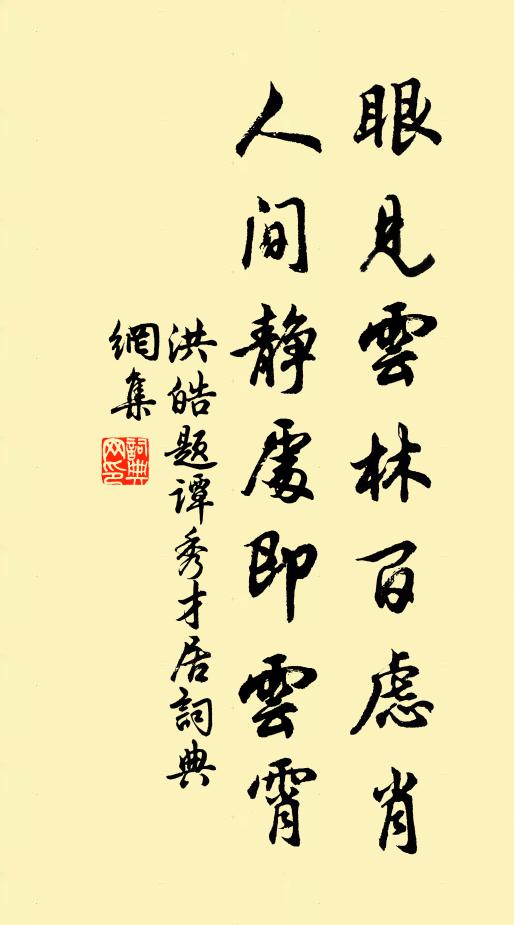 眼見雲林百慮肖
人间靜處即雲霄
洪皓题譚秀才居詞典
網集
詞典
网印